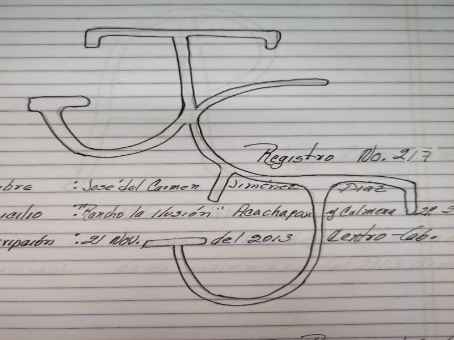 Registro No. 217
bre : José del Carmen Jiménez Díaz
cilio : "Rancho la Ilusión" Acachapan y Colmena
ripción : 21 Nov. del 2013 Centro-Tab.